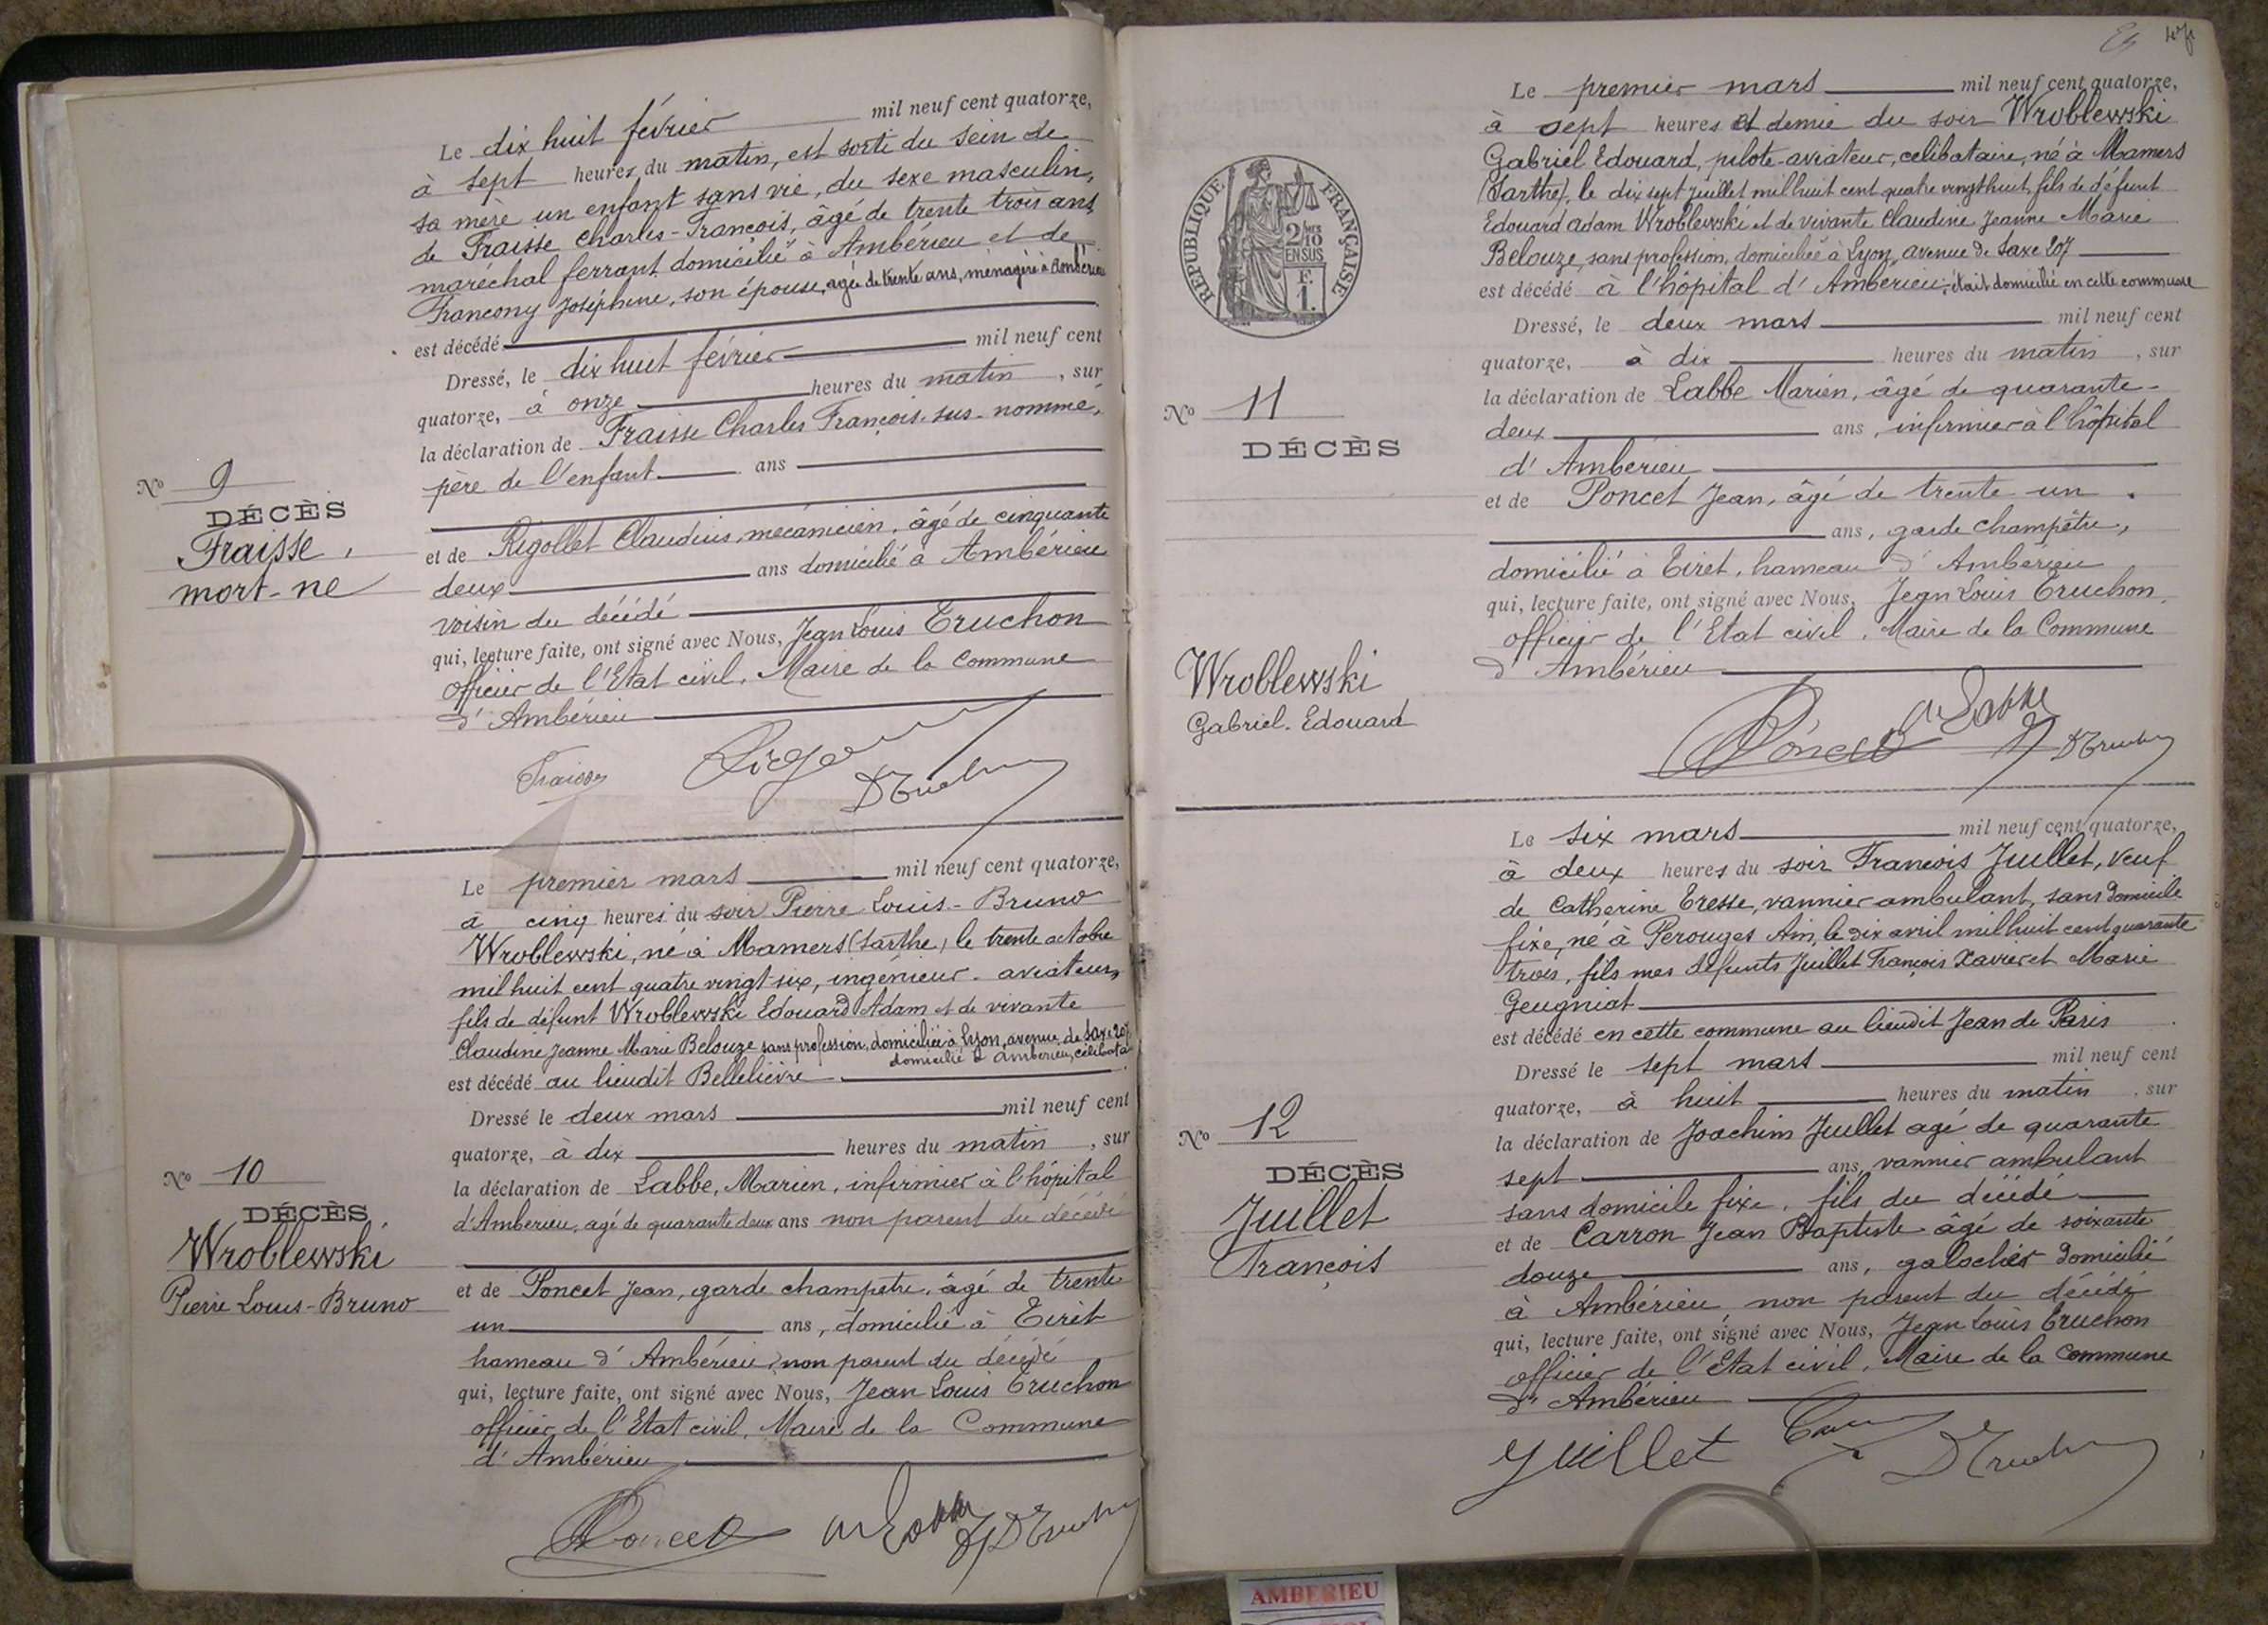 Le dix huit février mil neuf cent quatorze,
à sept heures du matin, est sorti du sein de
sa mère un enfant sans vie, du sexe masculin,
de Fraisse Charles-François, âgé de trente trois ans,
maréchal ferrant domicilié à Ambérieu et de
Francony Joséphine, son épouse, agée de trente ans, ménagère à Ambérieu
est décédé
Dressé, le dix huit février mil neuf cent
quatorze, à onze heures du matin, sur
la déclaration de Fraisse Charles François sus-nommé,
père de l'enfant ans
et de Rigollet Claudius, mécanicien, âgé de cinquante
deux ans domicilié à Ambérieu
voisin du décédé
qui, lecture faite, ont signé avec Nous, Jean Louis Truchon
officier de l'Etat civil, Maire de la Commune
d'Ambérieu
No 9
DÉCÈS
Fraisse,
mort-né
Fraisse
Le premier mars mil neuf cent quatorze,
à cinq heures du soir Pierre Louis-Bruno
Wroblewski, né à Mamers (Sarthe) le trente octobre
mil huit cent quatre vingt six, ingénieur-aviateur,
fils de défunt Wroblewski Edouard Adam et de vivante
Claudine Jeanne Marie Belouze sans profession, domiciliée à Lyon, avenue de Saxe 207
domicilié à Ambérieu, célibata
est décédé au lieudit Bellelièvre
Dressé le deux mars mil neuf cent
quatorze, à dix heures du matin, sur
la déclaration de Labbe, Marien, infirmier à l'hôpital
d'Ambérieu, agé de quarante deux ans non parent du décédé
et de Poncet Jean, garde champetre, âgé de trente
un ans, domicilié à Tiret
hameau d'Ambérieu, non parent du décédé
qui, lecture faite, ont signé avec Nous, Jean Louis Truchon
officier de l'Etat civil, Maire de la Commune
d'Ambérieu
No 10
DÉCÈS
Wroblewski
Pierre Louis-Bruno
Poncet
Le premier mars mil neuf cent quatorze,
à sept heures et demie du soir Wroblewski
Gabriel Edouard, pilote-aviateur, célibataire, né à Mamers
(Sarthe), le dix sept juillet mil huit cent quatre vingt huit, fils de défunt
Edouard Adam Wroblewski et de vivante Claudine Jeanne Marie
Belouze, sans profession, domiciliée à Lyon, avenue de Saxe 207
est décédé à l'hôpital d'Ambérieu; était domicilié en cette commune
Dressé, le deux mars mil neuf cent
quatorze, à dix heures du matin, sur
la déclaration de Labbe Marien, âgé de quarante-
deux ans, infirmier à l'hôpital
d'Ambérieu
et de Poncet Jean, âgé de trente un
ans, garde champêtre,
domicilié à Tiret, hameau d'Ambérieu
qui, lecture faite, ont signé avec Nous, Jean Louis Truchon,
officier de l'Etat civil, Maire de la Commune
d'Ambérieu
RÉPUBLIQUE FRANÇAISE
2/10
EN SUS
F.
1.
No 11
DÉCÈS
Wroblewski
Gabriel-Edouard
Poncet
Labbe
Le six mars mil neuf cent quatorze,
à deux heures du soir François Juillet, veuf
de Catherine Tresse, vannier ambulant, sans domicile
fixe, né à Perouges Ain, le dix avril mil huit cent quarante
trois, fils mes défunts Juillet François Xavier et Marie
Geugniot
est décédé en cette commune au lieudit Jean de Paris
Dressé le sept mars mil neuf cent
quatorze, à huit heures du matin, sur
la déclaration de Joachim Juillet agé de quarante
sept ans, vannier ambulant
sans domicile fixe, fils du décédé
et de Carron Jean Baptiste âgé de soixante
douze ans, galochier domicilié
à Ambérieu, non parent du décédé
qui, lecture faite, ont signé avec Nous, Jean Louis Truchon
officier de l'Etat civil, Maire de la Commune
d'Ambérieu
No 12
DÉCÈS
Juillet
François
Juillet
AMBERIEU